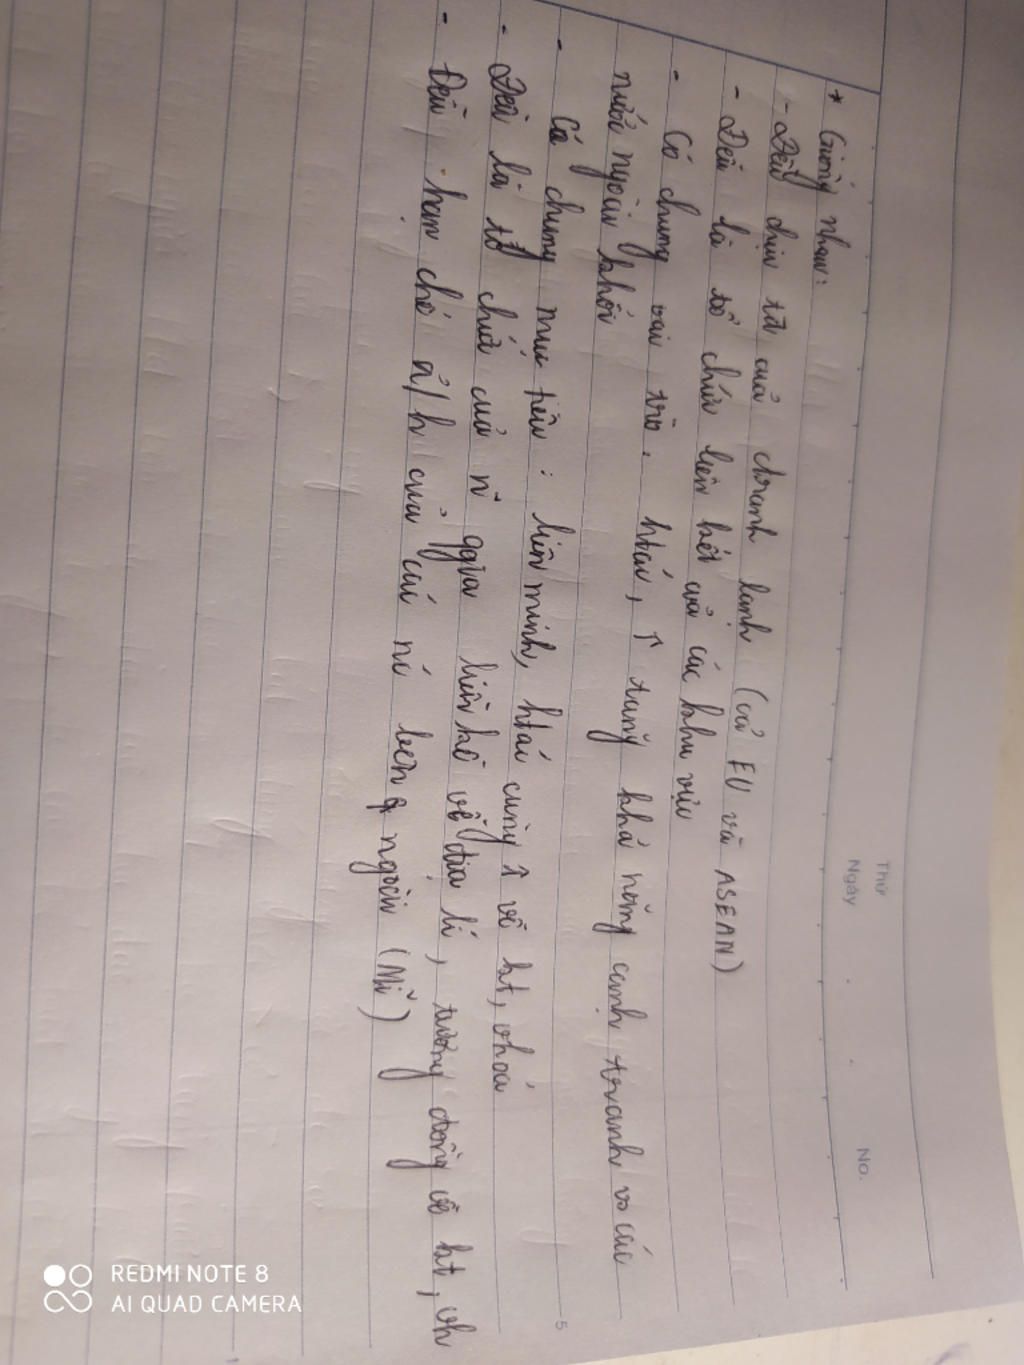 Thứ
Ngày
No.
* Giống nhau:
- Đều chịu tđ của ctranh lạnh (cả EU và ASEAN)
- Đều là tổ chức liên kết của các khu vực
- Có chung vai trò. htác, ↑ tăng khả năng cạnh tranh vs các
nước ngoài khối
- Có chung mục tiêu: liên minh, htác cùng ↑ về kt, vhoá
- Đều là tổ chức của n` qgia liền kề về địa lí, tương đồng về kt, vh
- Đều hạn chế ả/h của các nc bên ngoài (Mĩ)
5
REDMI NOTE 8
AI QUAD CAMERA